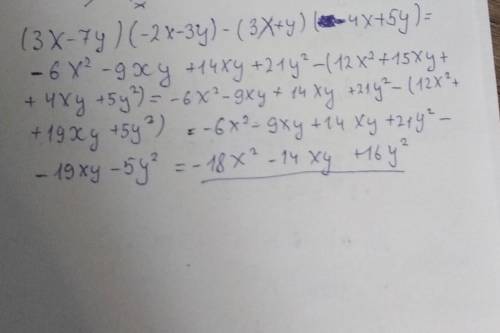 (3x-7y)(-2x-3y)-(3x+y)(4x+5y)=
-6x²-9xy+14xy+21y²-(12x²+15xy+
+4xy+5y²)=-6x²-9xy+14xy+21y²-(12x²+
+19xy+5y²) =-6x²-9xy+14xy+21y²-
-19xy-5y² =-18x²-14xy +16y²